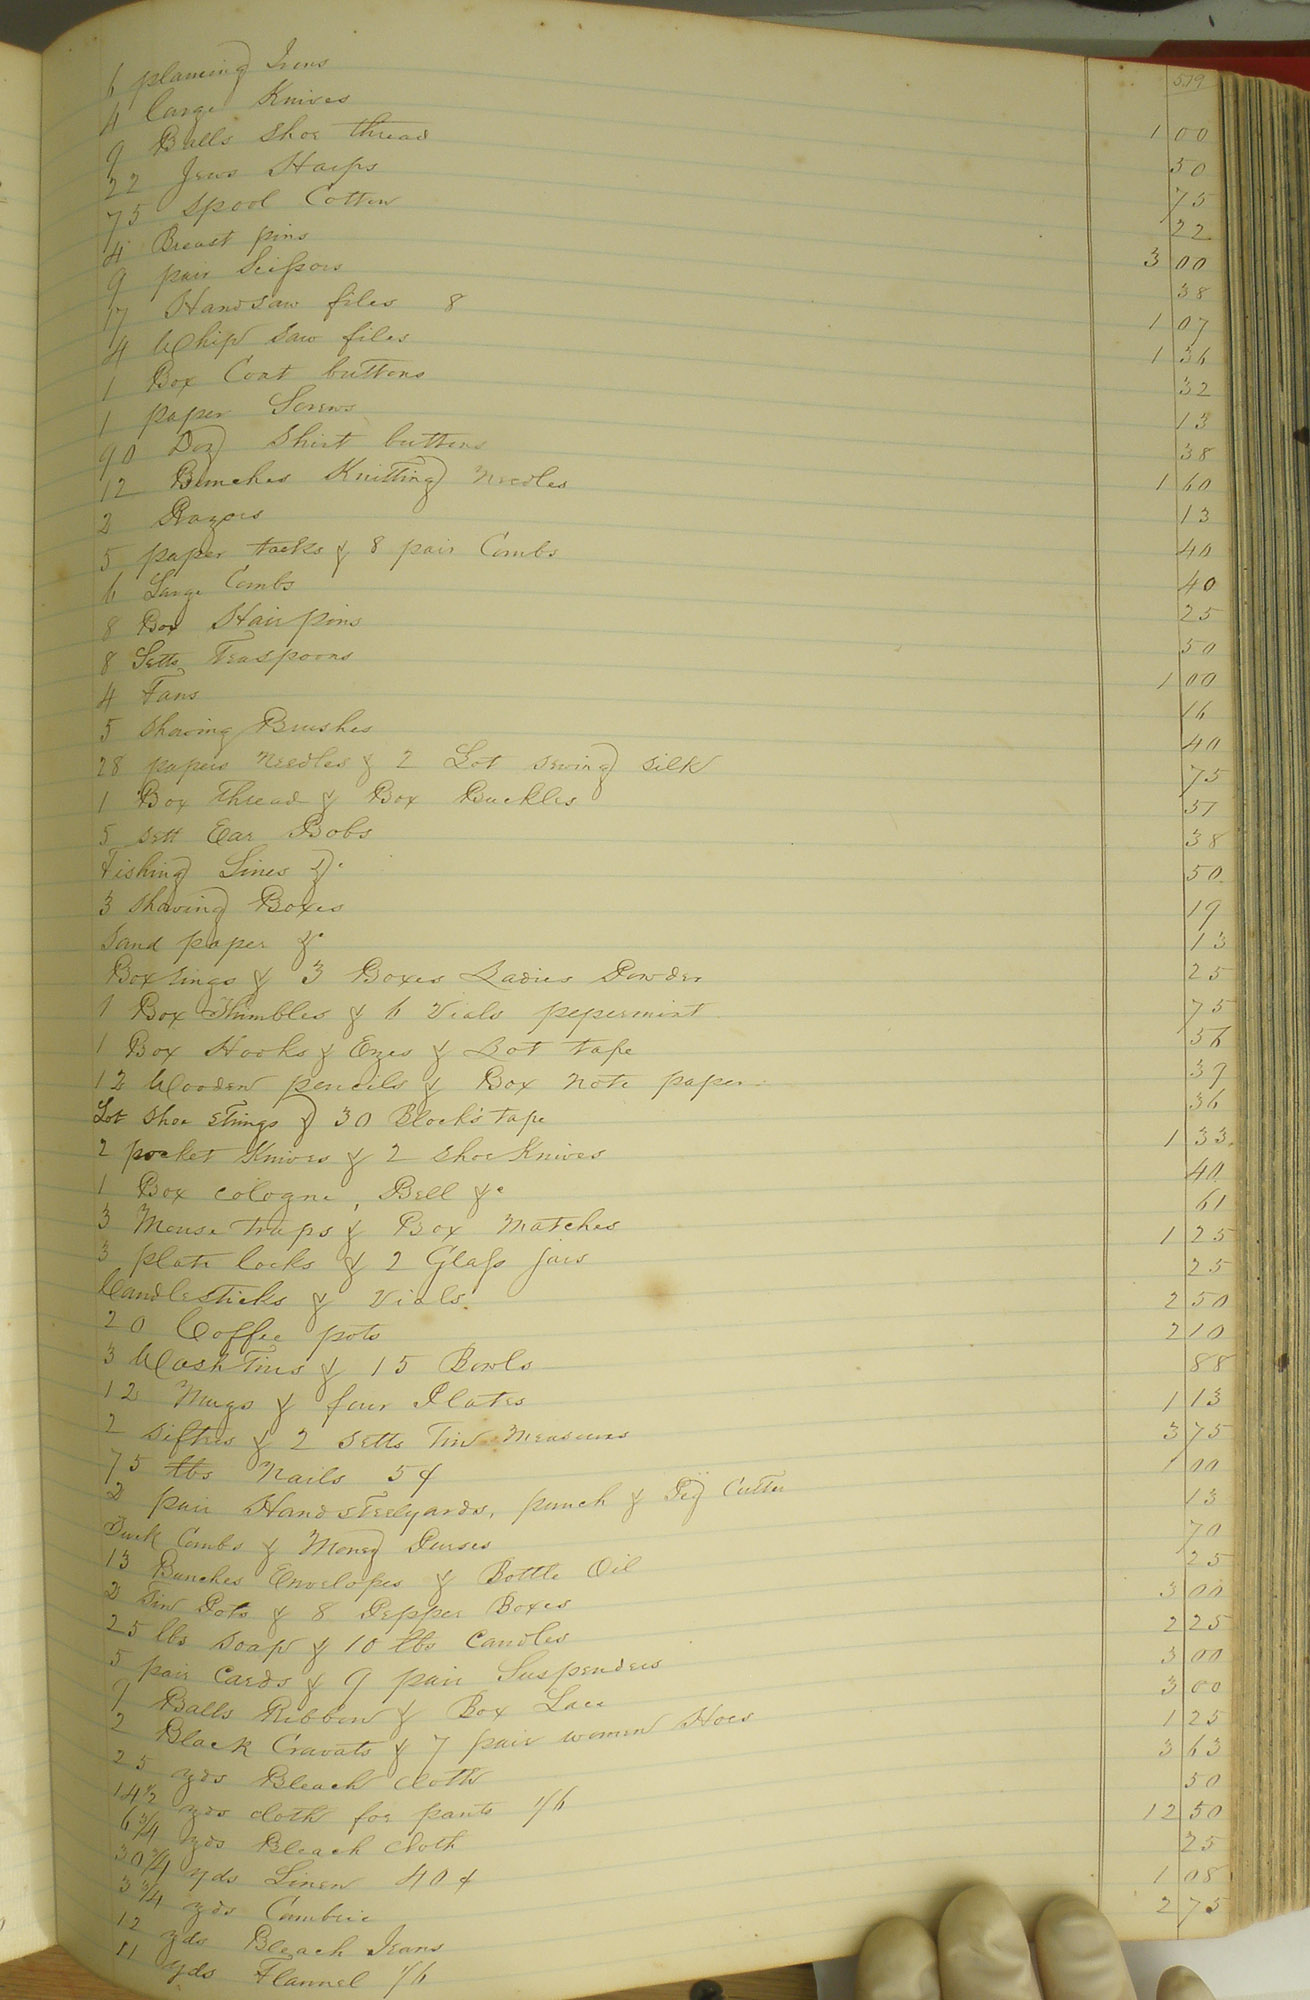 519
6 planeing Irons 1 00
4 large Knives 50
9 Balls shoe thread 75
22 Jews Harps 22
75 spool Cotton 3 00
4 Breast pins 38
9 pair Scissors 1 07
17 Handsaw files 8 1 36
4 Whip saw files 32
1 Box Coat buttons 13
1 paper Screws 38
90 Doz shirt buttons 1 60
12 Bunches Knitting needles 13
2 Razors 40
5 paper tacks & 8 pair Combs 40
6 Large Combs 25
8 Box Hair pins 50
8 Setts Teaspoons 1 00
4 Fans 16
5 shaving Brushes 40
28 papers needles & 2 Lot sewing silk 75
1 Box thread & Box Buckles 37
5 sett Ear Bobs 38
Fishing Lines &c 50
3 shaving Boxes 19
Sand paper &c 13
Box rings & 3 Boxes Ladies Powder 25
1 Box Thimbles & 6 Vials pepermint 75
1 Box Hooks & Eyes & Lot tape 56
12 Wooden pencils & Box note paper 39
Lot shoe strings & 30 Block's tape 36
2 pocket Knives & 2 shoe Knives 1 33
1 Box cologne, Bell &c 40
3 Mouse traps & Box matches 61
3 plate locks & 2 Glass jars 1 25
Candlesticks & Vials 25
20 Coffee pots 2 50
3 Wash Tins & 15 Bowls 2 10
12 Mugs & four Plates 88
2 sifters & 2 setts Tin Measures 1 13
75 lbs Nails 5¢ 3 75
2 pair Hand steelyards, punch & Peg Cutter 1 00
Tuck Combs & Money Purses 13
13 Bunches Envelopes & Bottle Oil 70
2 Tin Pots & 8 Pepper Boxes 25
25 lbs soap & 10 lbs candles 3 00
5 pair cards & 9 pair Suspenders 2 25
9 Balls Ribbon & Box Lace 3 00
2 Black Cravats & 7 pair women Shoes 3 00
25 yds Bleach cloth 1 25
14½ yds cloth for pants 1/6 3 63
6¾ yds Bleach cloth 50
30¾ yds Linen 40¢ 12 50
3¾ yds Cambric 25
12 yds Bleach Jeans 1 08
11 yds Flannel 1/6 2 75